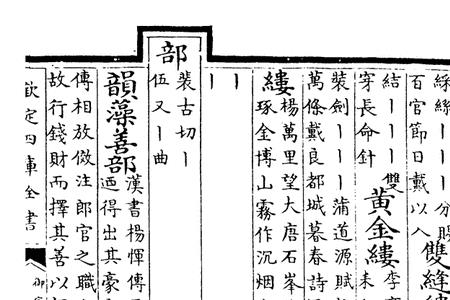 綵絲丨丨分賜
百官節日戴以入
雙縫
結丨丨丨雙
穿長命針
黃金縷
李
未
裝劍丨丨丨蒲道源賦
萬條戴良都城暮春詩
縷
楊萬里望大唐石峯
琢金博山霧作沉烟
丨
丨
部
裴古切丨
伍又丨曲
韻藻善部
漢書楊惲傳
迺得出其豪
傳相放俲注郎官之職
故行錢財而擇其善以
欽定四庫全書
御